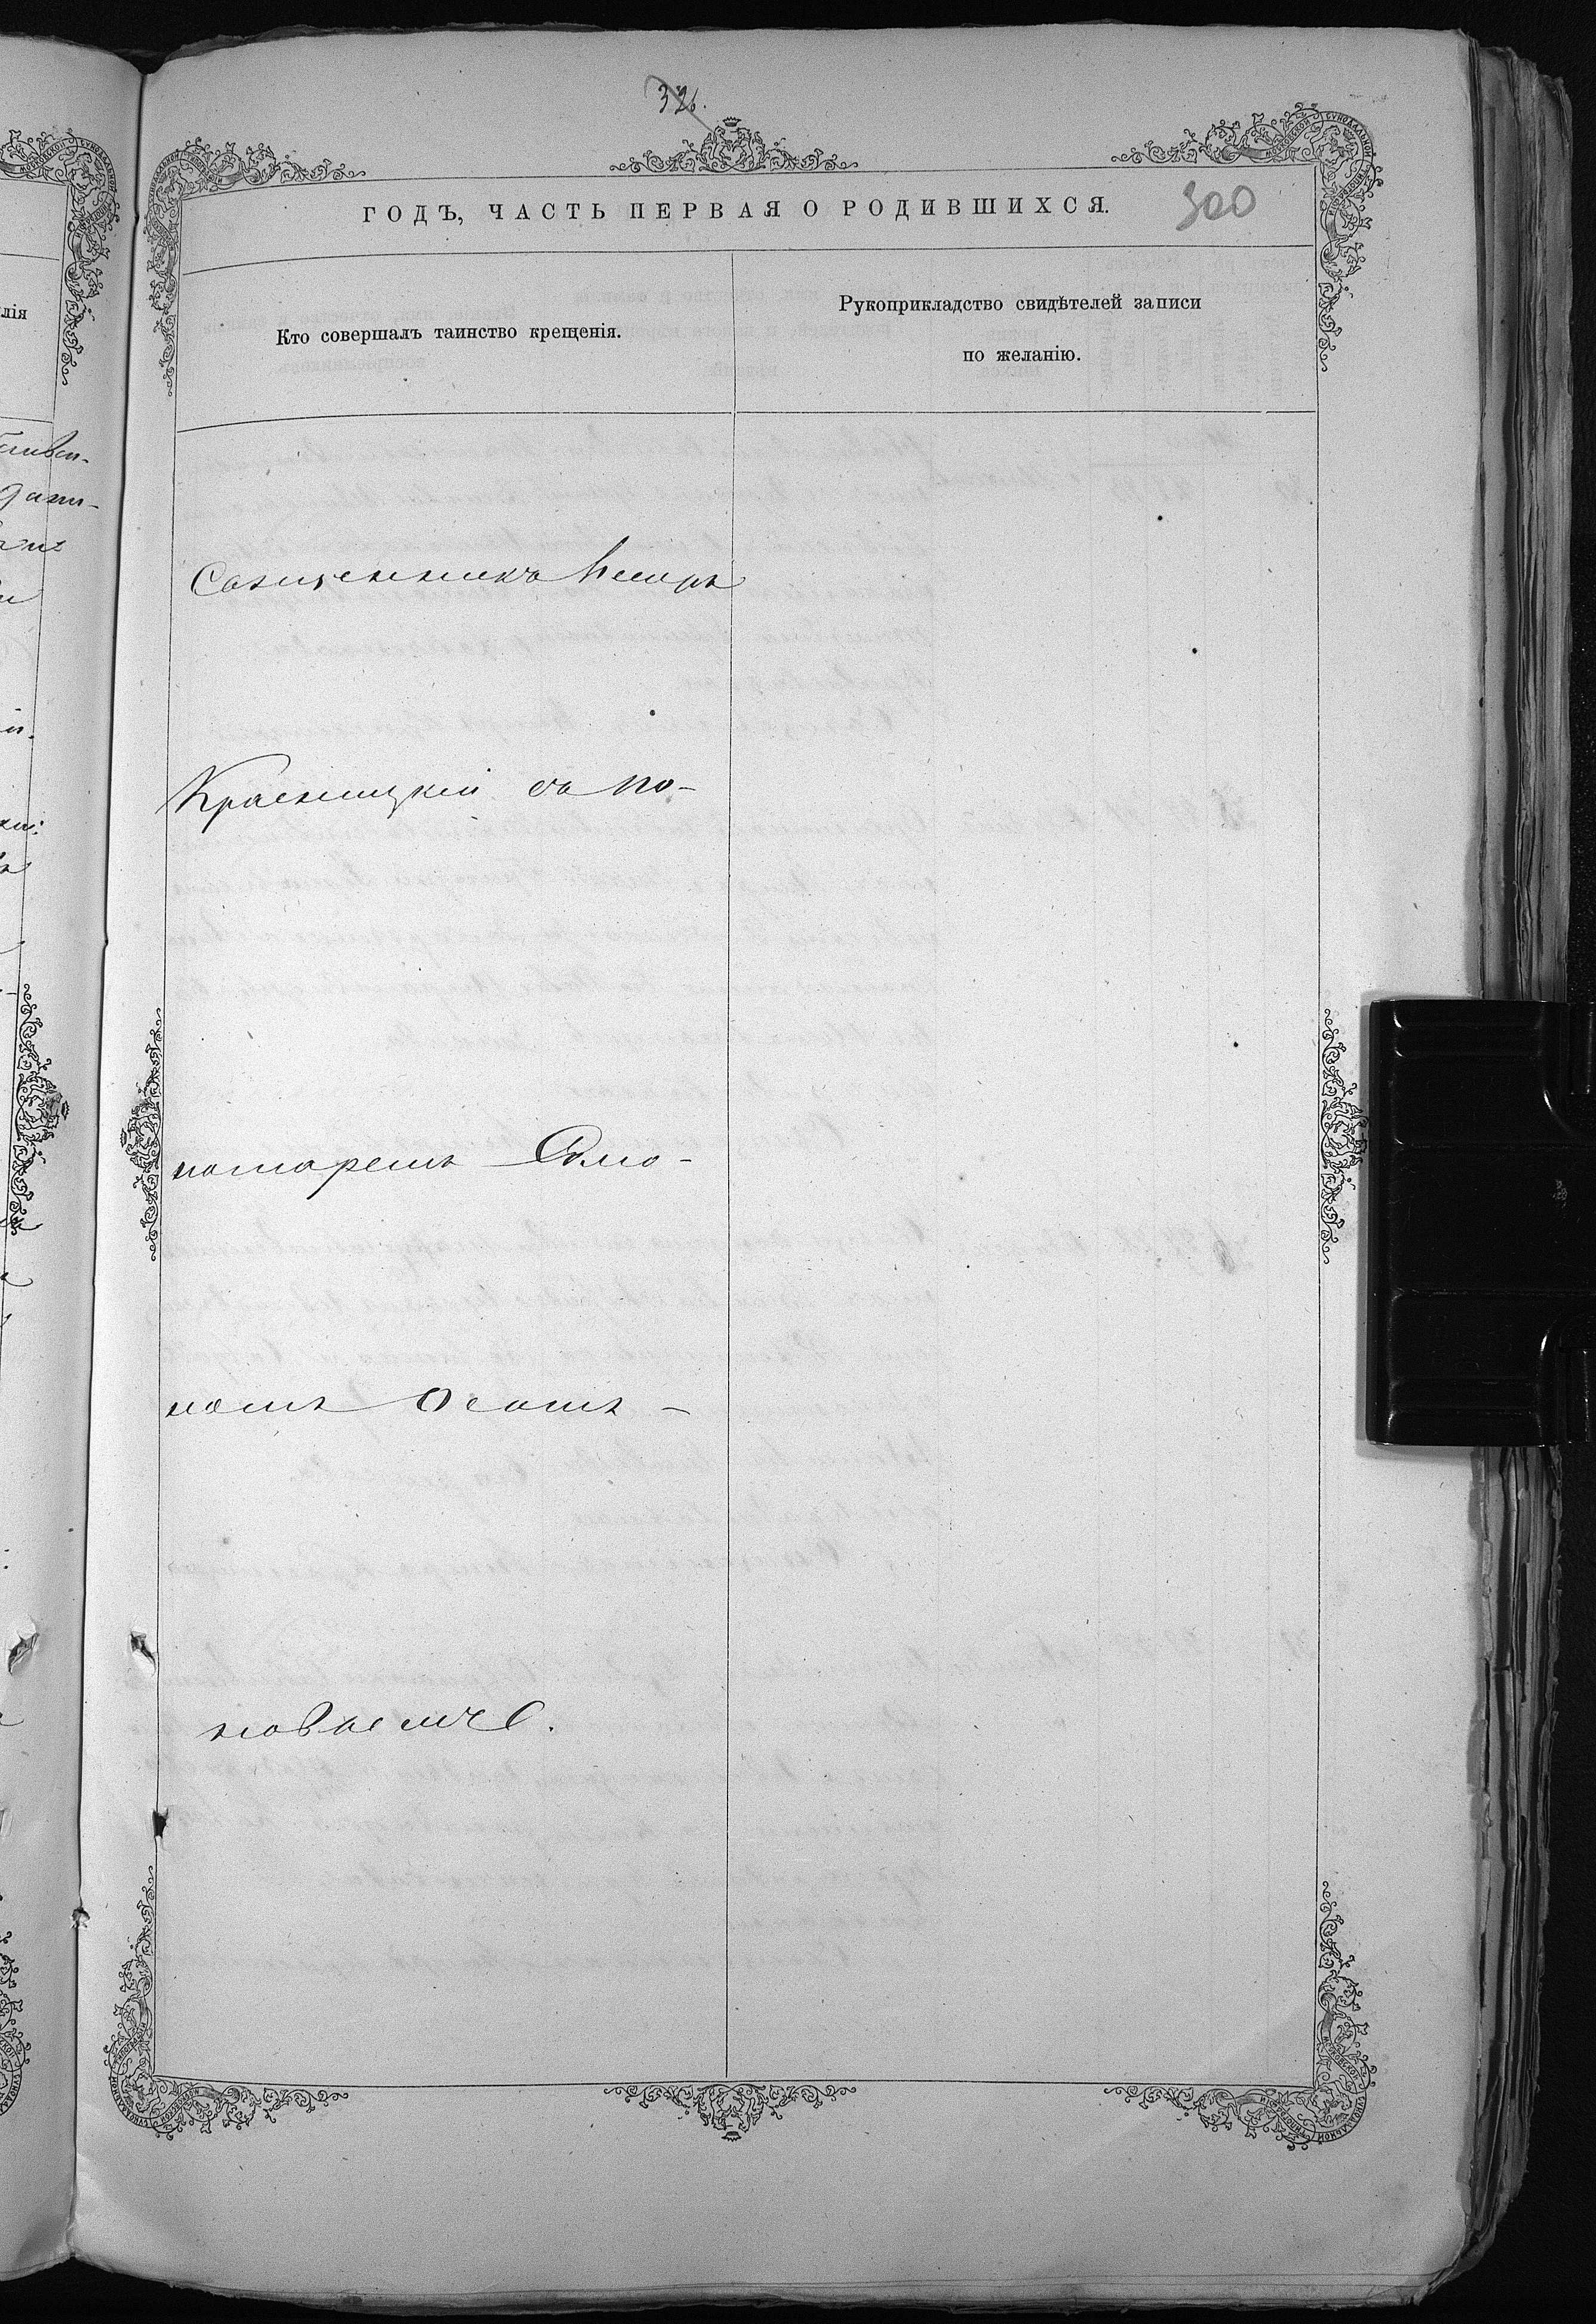 326.
ГОДЪ, ЧАСТЬ ПЕРВАЯ О РОДИВШИХСЯ.
300
Кто совершалъ таинство крещенія.
Рукоприкладство свидѣтелей записи
по желанію.
Священникъ Петръ
Красницкій съ по-
номаремъ
номъ
новичемъ.
лія